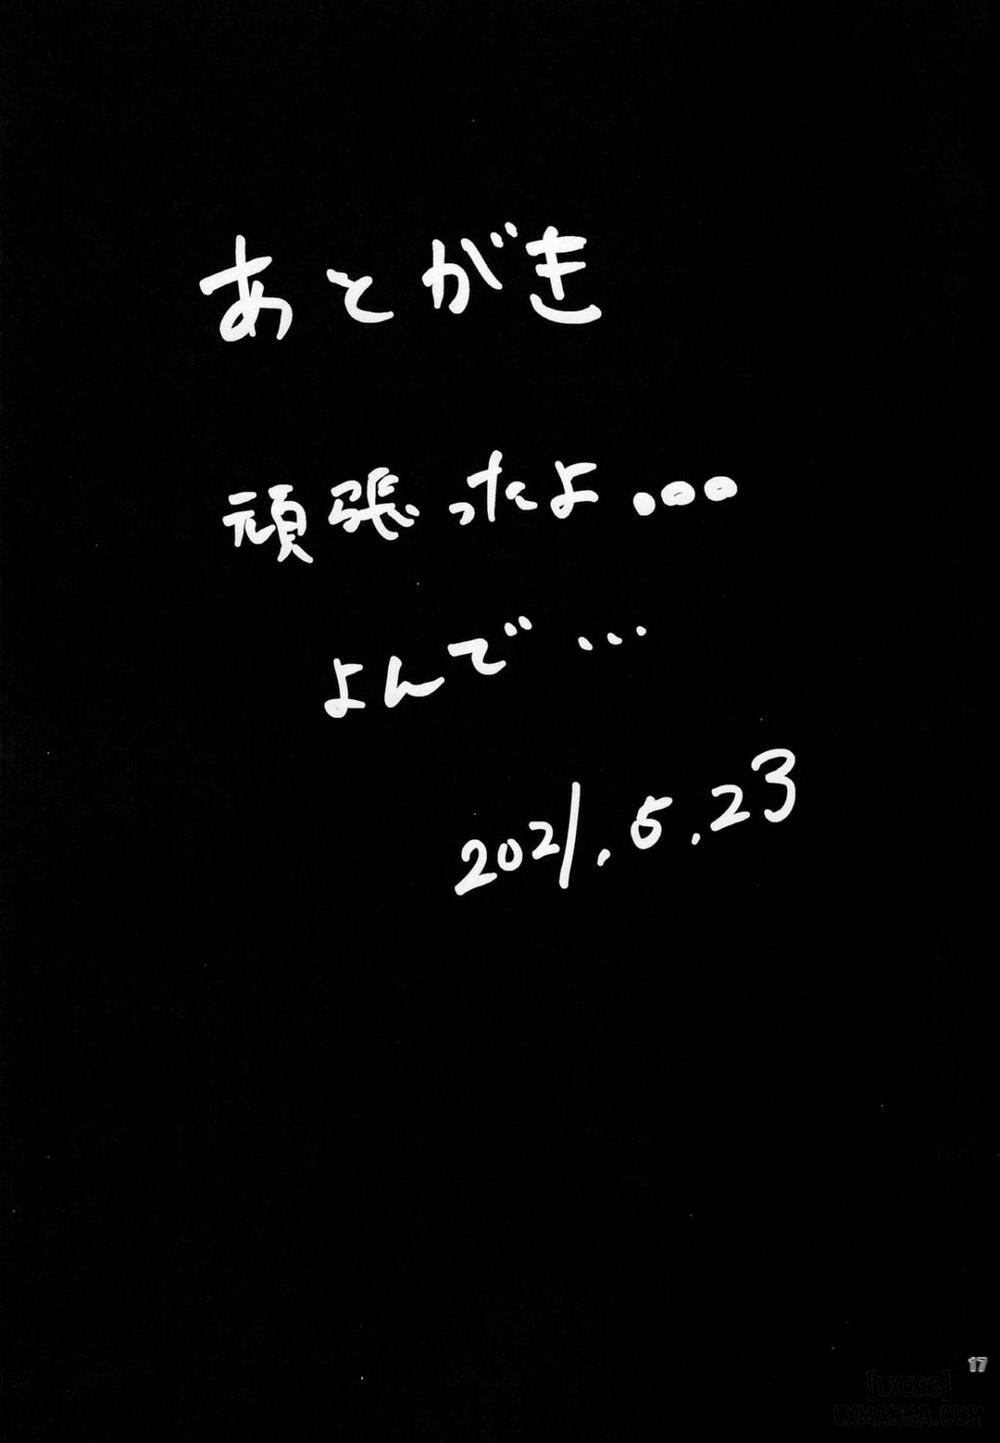 あとがき
頑張ったよ...
よんで...
2021.5.23
17
[LXERS]
LXMANGA.COM